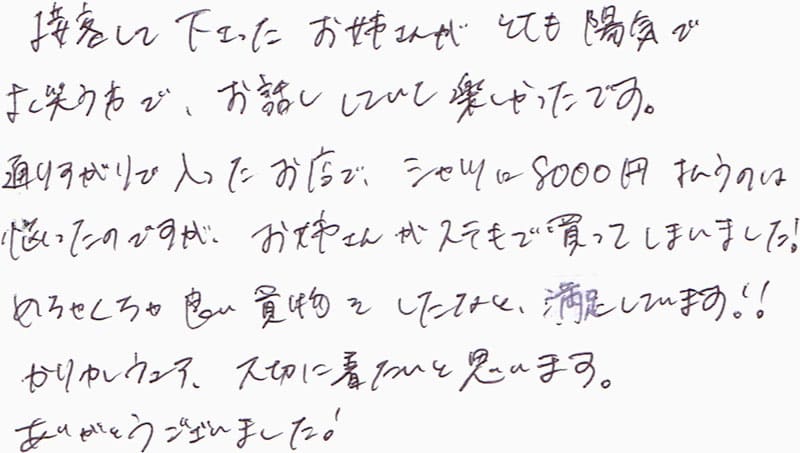 接客して下さった お姉さんが とても 陽気で
よく笑う方で、お話し していて 楽しかったです。
通りすがりで 入った お店で、シャツに 8000円 払うのは
悩んだのですが、お姉さんが ステキで 買って しまいました!
めちゃくちゃ 良い 買物を したなと、満足しています!!
かりゆしウェア、大切に 着たいと 思います。
ありがとうございました!